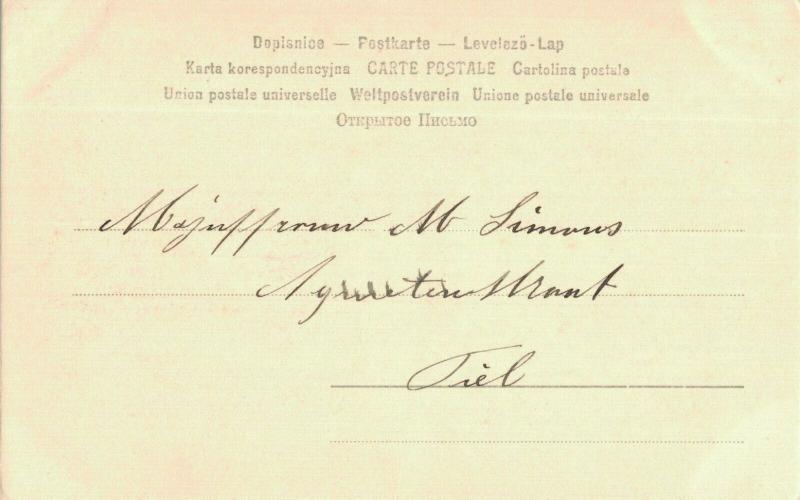 Dopisnice — Postkarte — Levelező-Lap
Karta korespondencyjna CARTE POSTALE Cartolina postale
Union postale universelle Weltpostverein Unione postale universale
Открытое Письмо
Mejuffrouw M Simons
Agnietenstraat
Tiel